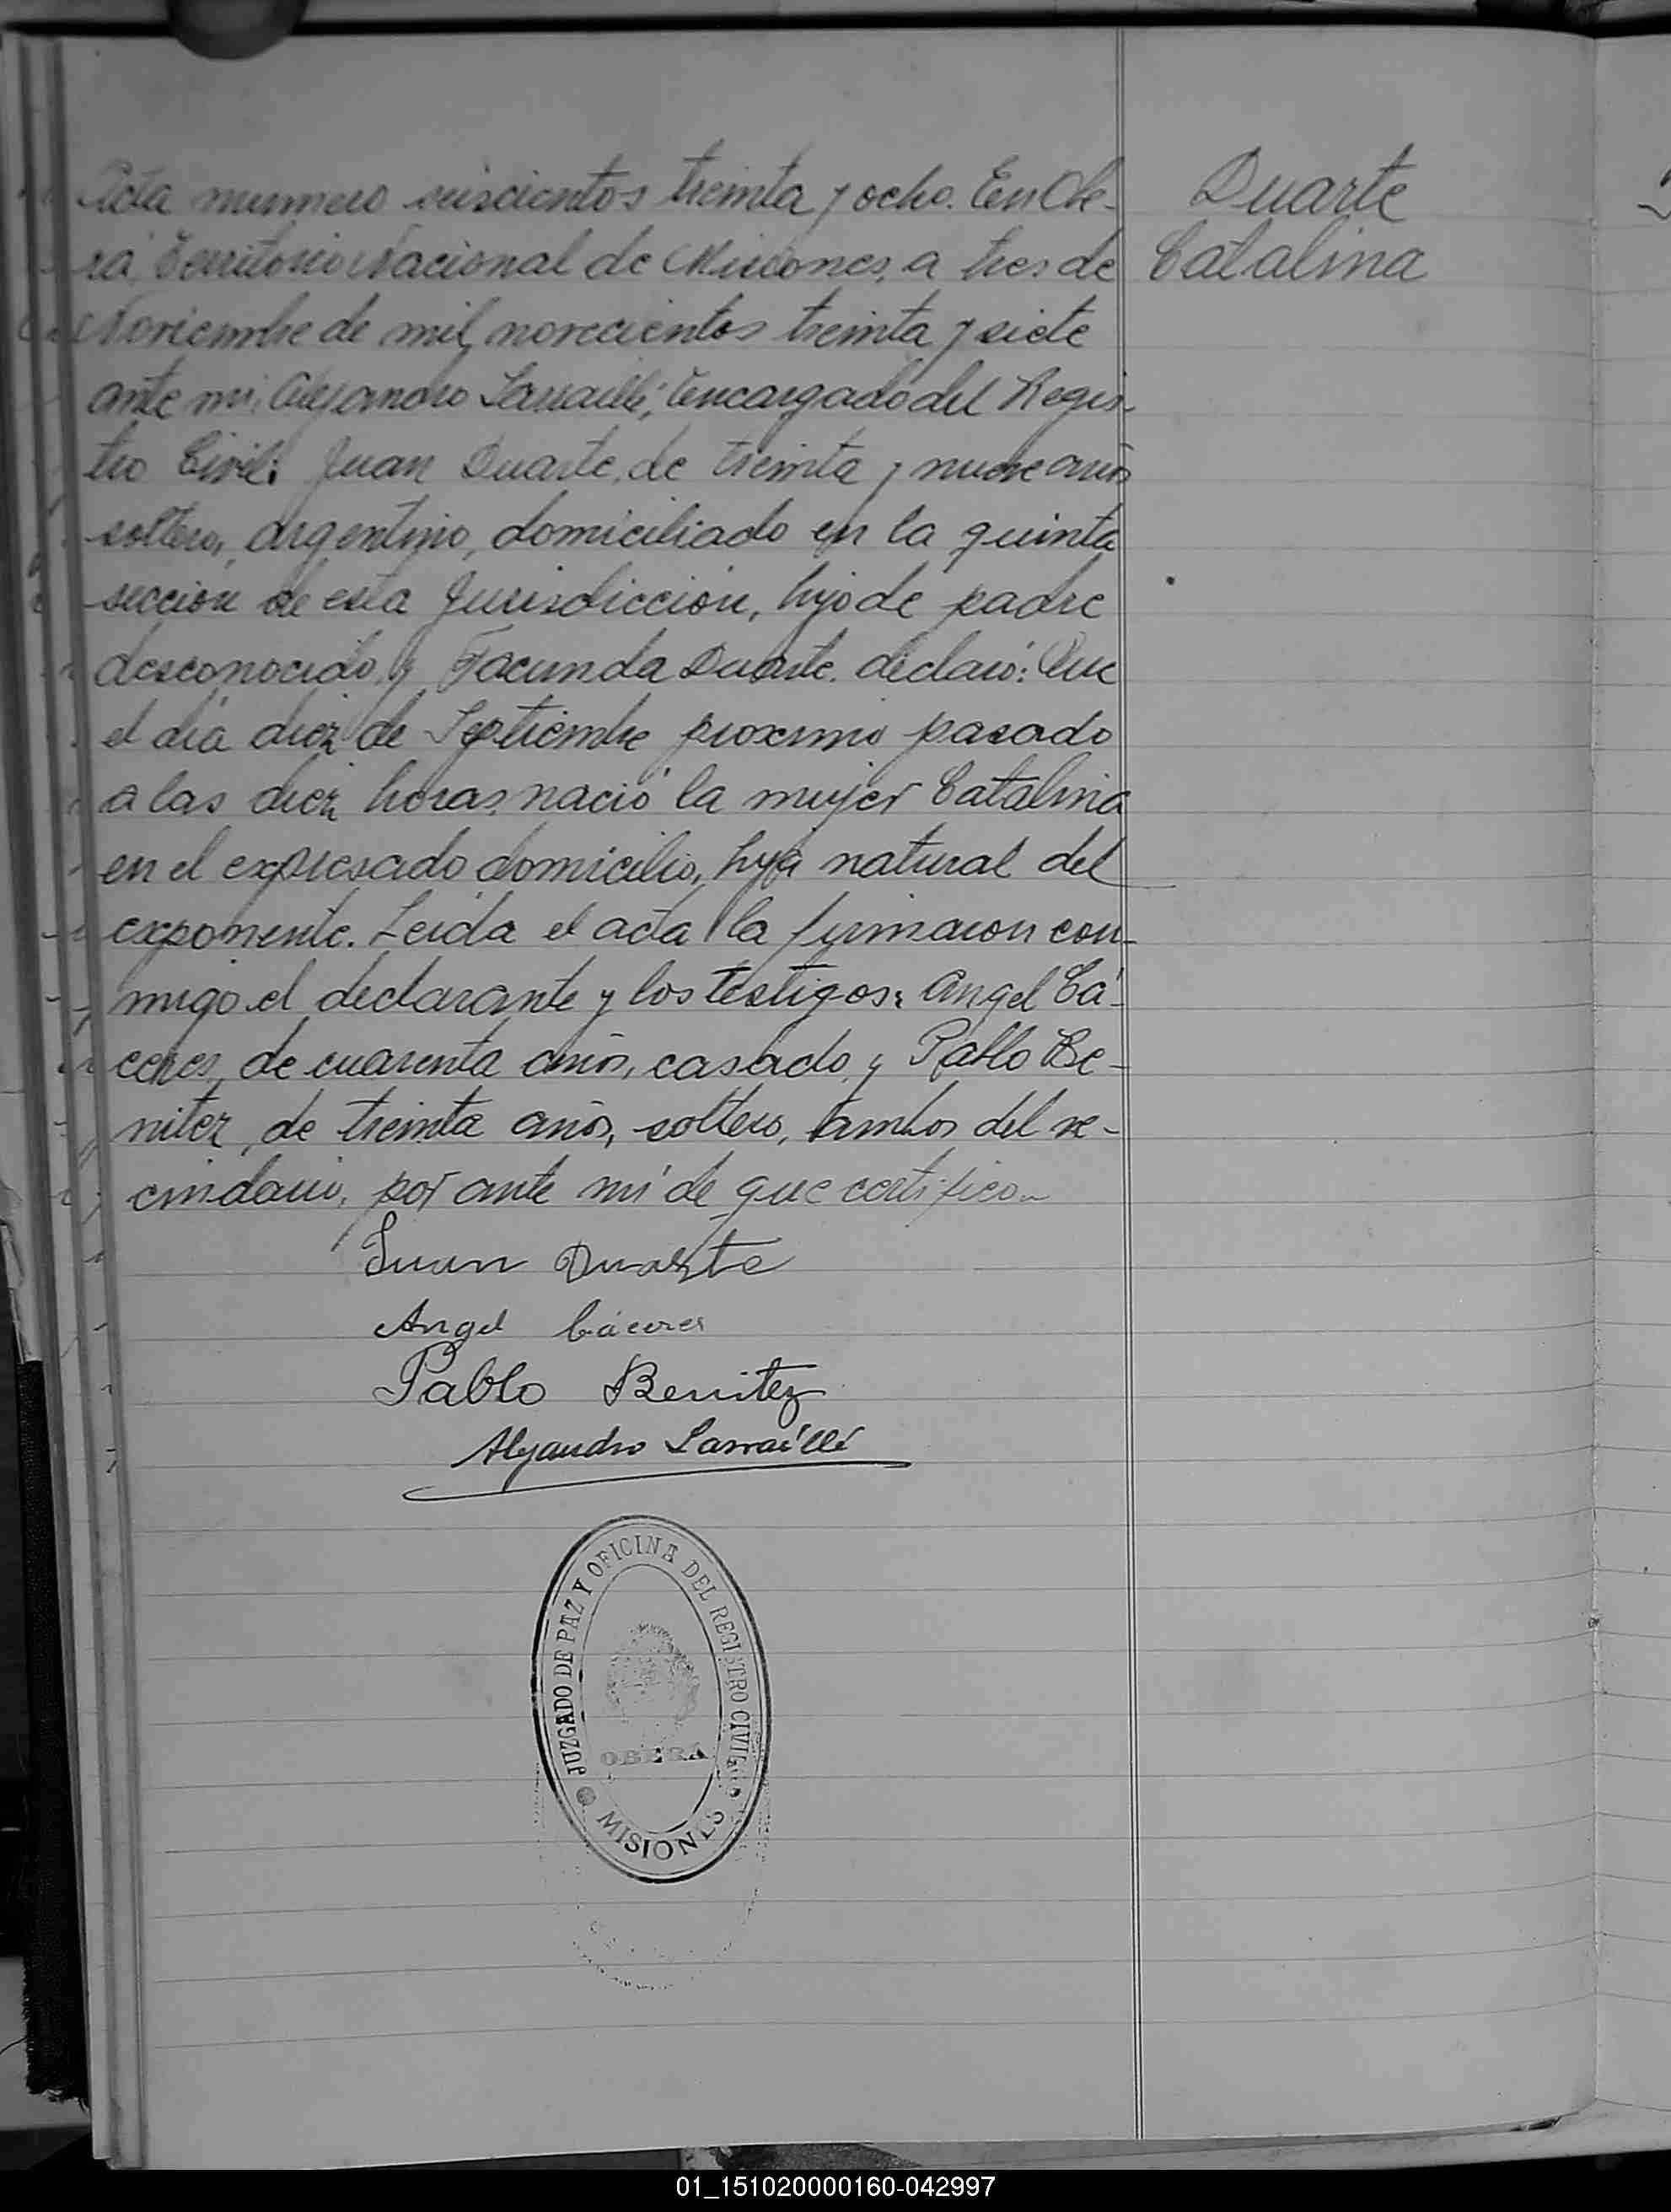 Duarte
Catalina
Acta numero seiscientos treinta y ocho. En Obe-
rá, Territorio Nacional de Misiones, a tres de
Noviembre de mil novecientos treinta y siete
ante mi, Alejandro Larraillé, Encargado del Regis-
tro Civil: Juan Duarte, de treinta y nueve años
soltero, argentino, domiciliado en la quinta
sección de esta Jurisdicción, hijo de padre
desconocido y Facunda Duarte. declaró: Que
el día diez de Septiembre proximo pasado
a las diez horas, nació la mujer Catalina
en el expresado domicilio, hija natural del
exponente. Leida el acta la firmaron con-
migo el declarante y los testigos: Angel Cá-
ceres, de cuarenta años, casado, y Pablo Be-
nitez, de treinta años, soltero, ambos del ve-
cindario, por ante mí de que certifico.
Juan Duarte
Angel Cáceres
Pablo Benitez
Alejandro Larraillé
JUZGADO DE PAZ Y OFICINA DEL REGISTRO CIVIL
OBERÁ
MISIONES
01_151020000160-042997